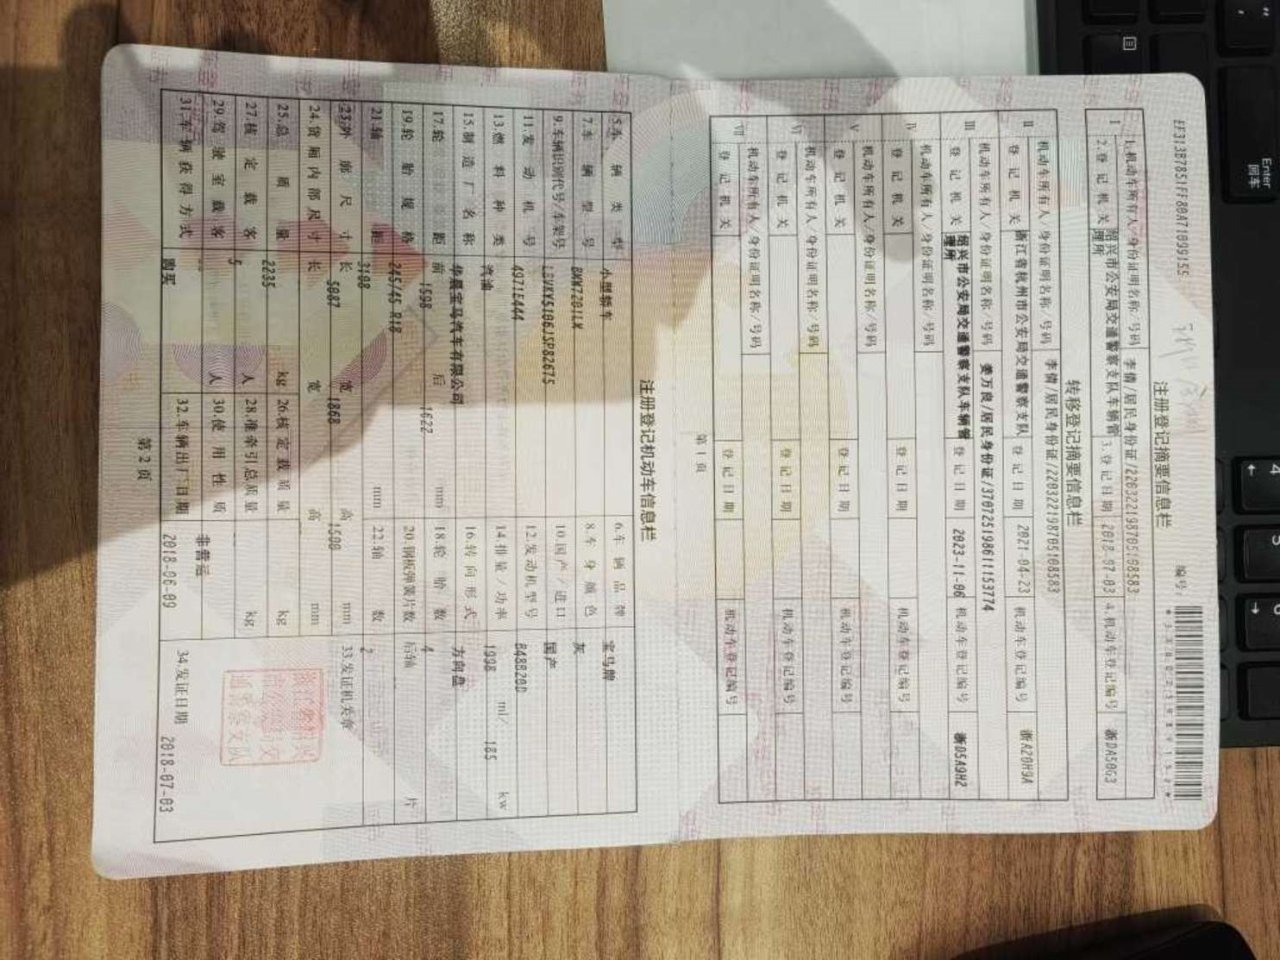 EF313B7851FF80A71099155
编号:
注册登记摘要信息栏
I 1.机动车所有人/身份证明名称/号码 李倩/居民身份证/220322198705108583
2.登记机关 绍兴市公安局交通警察支队车辆管理所 3.登记日期 2018-07-03 4.机动车登记编号 浙DA50G3
转移登记摘要信息栏
II 机动车所有人/身份证明名称/号码 李倩/居民身份证/220322198705108583
登记机关 浙江省杭州市公安局交通警察支队 登记日期 2021-04-23 机动车登记编号 浙A20H9A
III 机动车所有人/身份证明名称/号码 姜万良/居民身份证/370725198611153774
登记机关 绍兴市公安局交通警察支队车辆管理所 登记日期 2023-11-06 机动车登记编号 浙D5A9H2
IV 机动车所有人/身份证明名称/号码
登记机关 登记日期 机动车登记编号
V 机动车所有人/身份证明名称/号码
登记机关 登记日期 机动车登记编号
VI 机动车所有人/身份证明名称/号码
登记机关 登记日期 机动车登记编号
VII 机动车所有人/身份证明名称/号码
登记机关 登记日期 机动车登记编号
第1页
注册登记机动车信息栏
5.车辆类型 小型轿车 6.车辆品牌 宝马牌
7.车辆型号 BMW7201LX 8.车身颜色 灰
9.车辆识别代号/车架号 LBVKY5106JSP82675 10.国产/进口 国产
11.发动机号 4971E444 12.发动机型号 B48B20D
13.燃料种类 汽油 14.排量/功率 1998 ml/ 185 kw
15.制造厂名称 华晨宝马汽车有限公司 16.转向形式 方向盘
17.轮距 前 1598 后 1622 mm 18.轮胎数 4
19.轮胎规格 245/45 R18 20.钢板弹簧片数 后轴 片
21.轴距 3108 mm 22.轴数 2
23.外廓尺寸 长 5087 宽 1868 高 1500 mm 33.发证机关章
24.货厢内部尺寸 长 宽 高 mm
25.总质量 2235 kg 26.核定载质量 kg
27.核定载客 5 人 28.准牵引总质量 kg
29.驾驶室载客 -- 人 30.使用性质 非营运
31.车辆获得方式 购买 32.车辆出厂日期 2018-06-09 34.发证日期 2018-07-03
第2页
Enter
回车